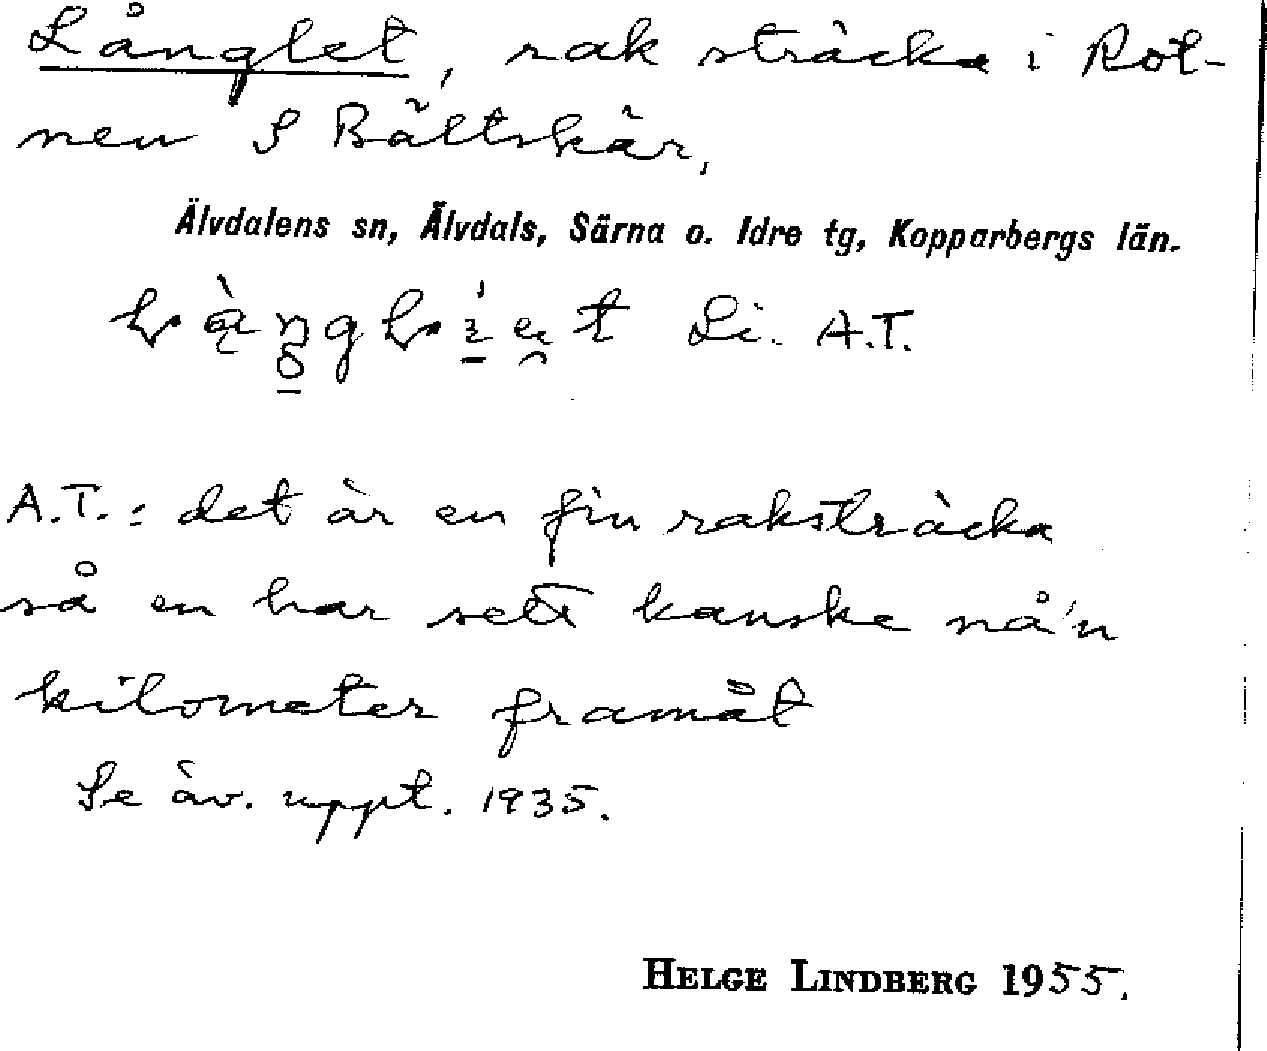 Långlet, rak sträcka i Rot-
nen S Bältskär,
Älvdalens sn, Älvdals, Särna o. Idre tg, Kopparbergs län.
Li. A.T.
A.T.: det är en fin raksträcka
så en har sett kanske nå'n
kilometer framåt
Se äv. uppt. 1935.
HELGE LINDBERG 1955.